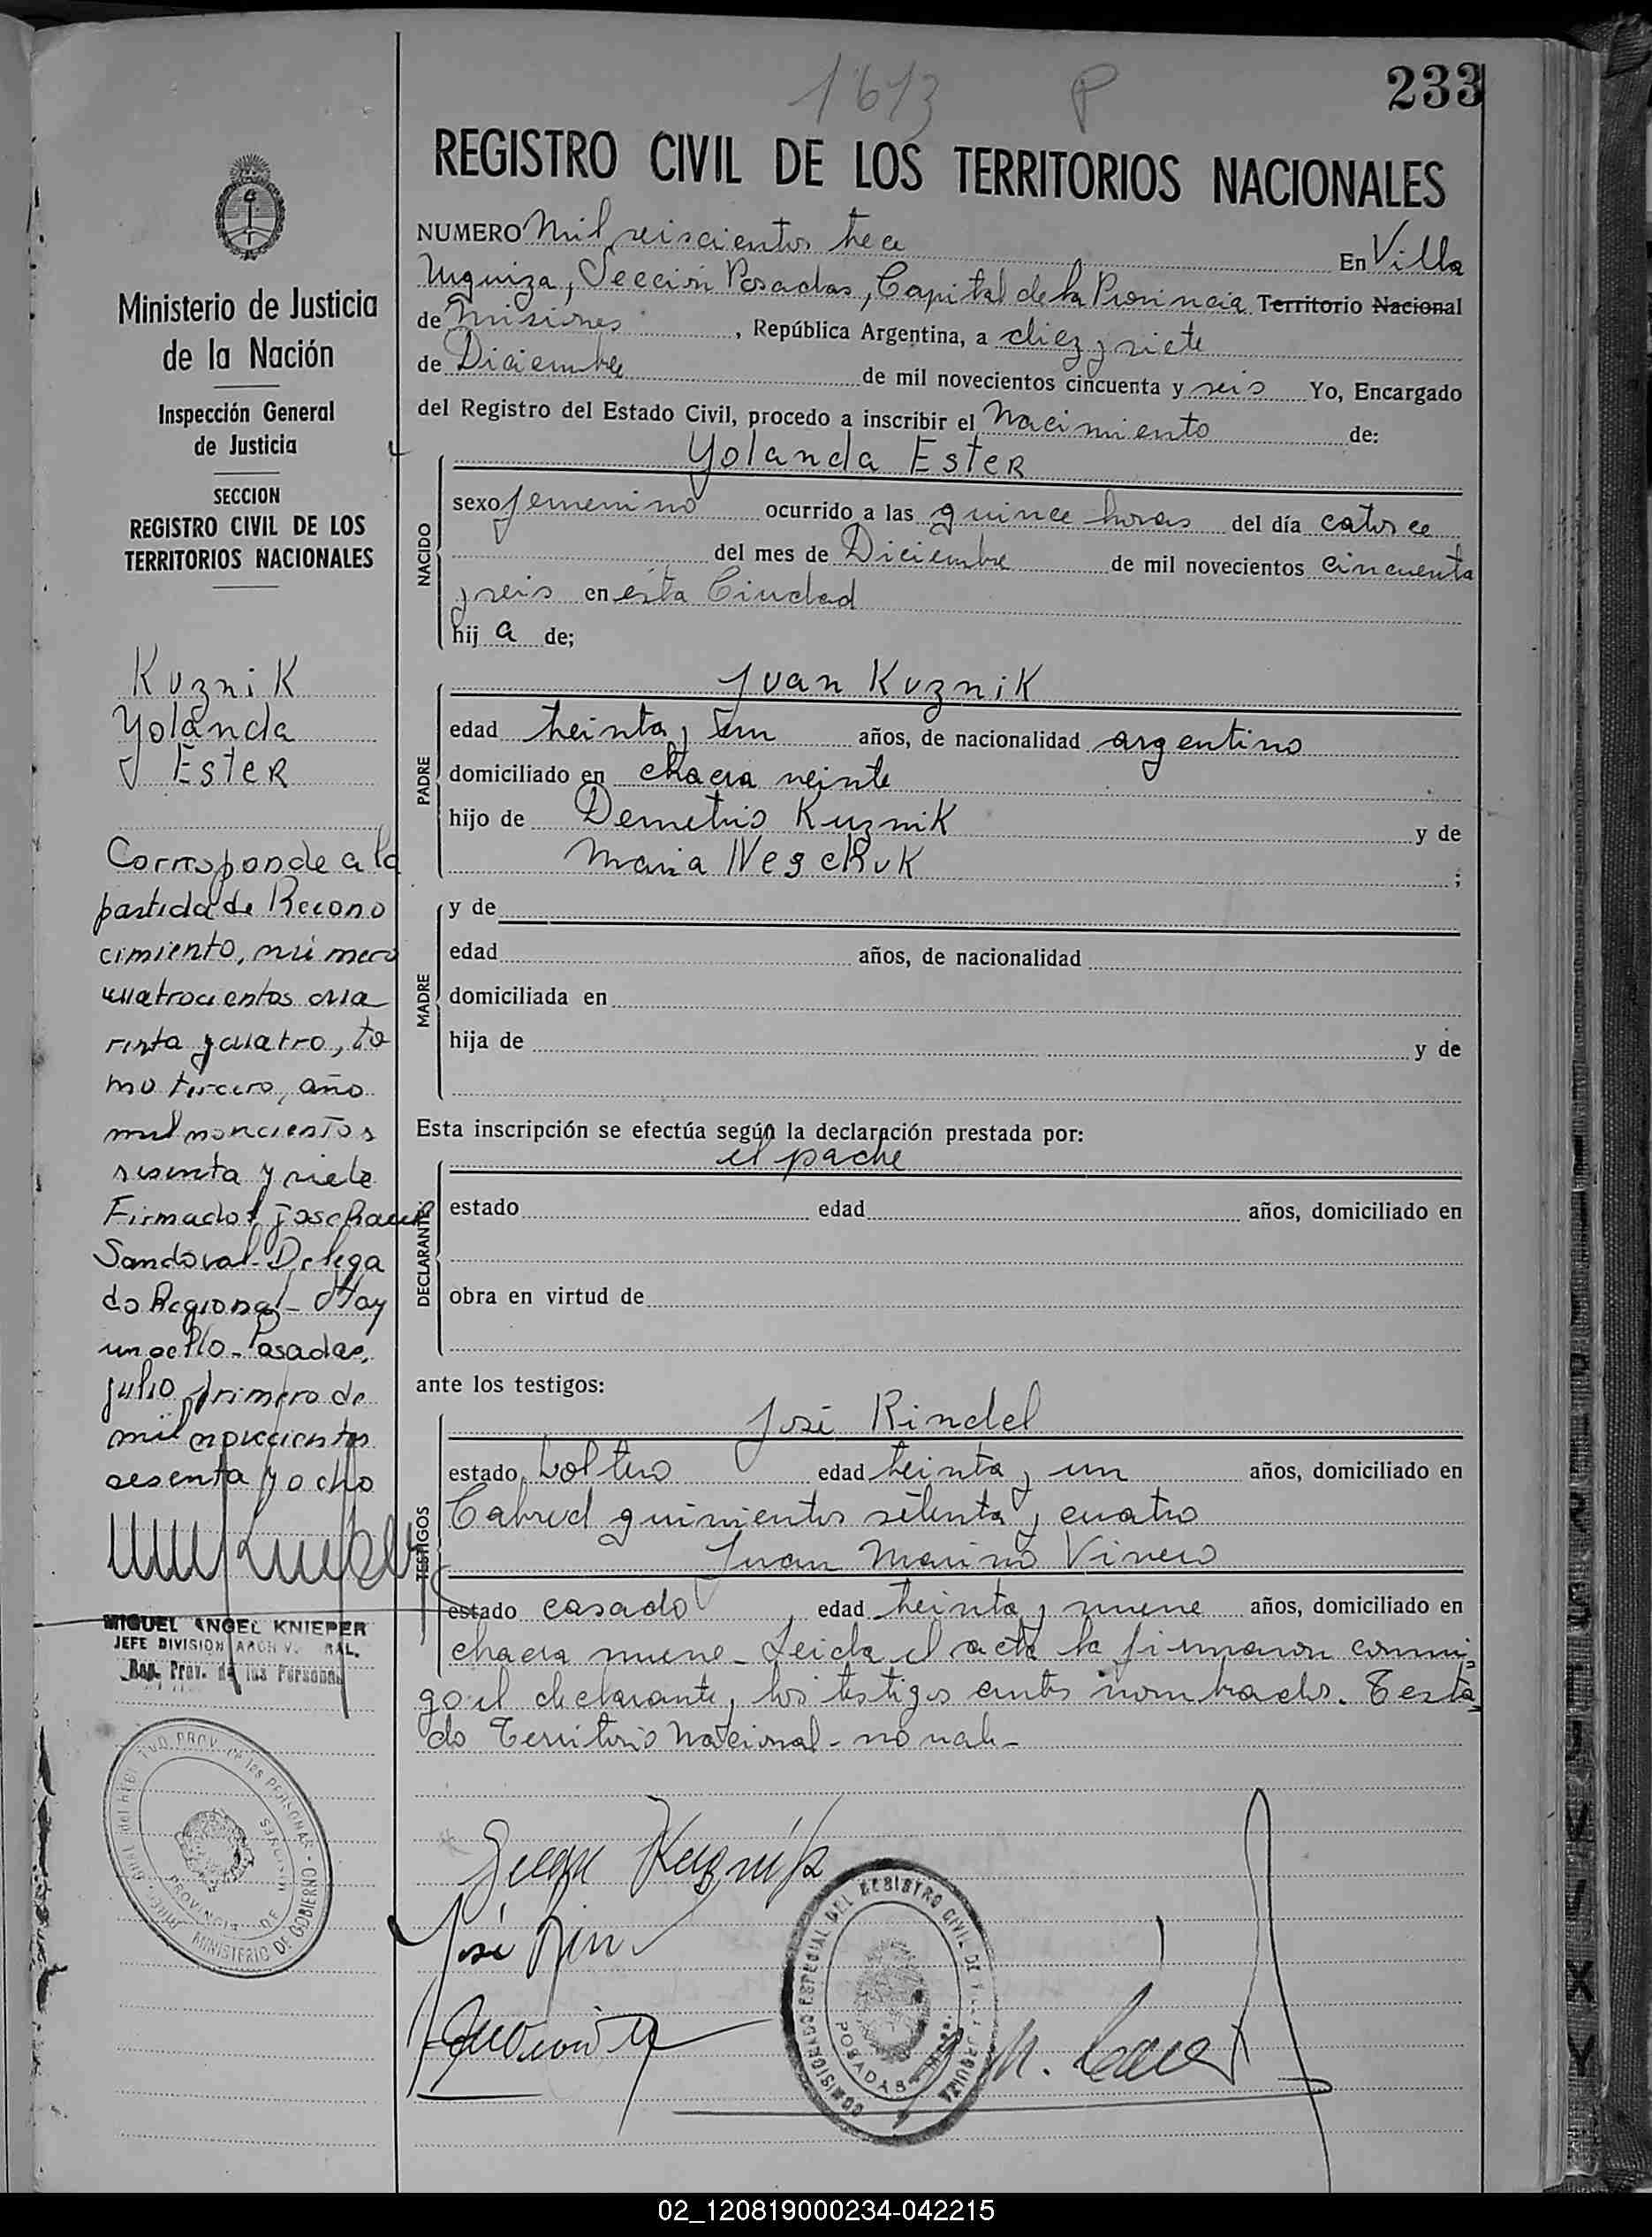 1613 P
233
REGISTRO CIVIL DE LOS TERRITORIOS NACIONALES
Ministerio de Justicia
de la Nación
Inspección General
de Justicia
SECCION
REGISTRO CIVIL DE LOS
TERRITORIOS NACIONALES
Kuznik
Yolanda
Ester
Corresponde a la
partida de Recono
cimiento, número
cuatrocientos cua
renta y cuatro, to
mo tercero, año
mil novecientos
sesenta y siete
Firmado: José
Sandoval - Delega
do Regional - Hay
un sello - Posadas,
julio primero de
mil novecientos
sesenta y ocho
MIGUEL ANGEL KNIEPER
JEFE DIVISION
Reg. Prov. de las Personas
PROV. de las PERSONAS - MINISTERIO DE GOBIERNO
PROVINCIA DE MISIONES
NUMERO Mil seiscientos trece En Villa
Urquiza, Sección Posadas, Capital de la Provincia Territorio Nacional
de Misiones, República Argentina, a diez y siete
de Diciembre de mil novecientos cincuenta y seis Yo, Encargado
del Registro del Estado Civil, procedo a inscribir el Nacimiento de:
Yolanda Ester
NACIDO
sexo femenino ocurrido a las quince horas del día catorce
del mes de Diciembre de mil novecientos cincuenta
y seis en ésta Ciudad
hij a de;
Juan Kuznik
PADRE
edad treinta y un años, de nacionalidad argentino
domiciliado en chacra veinte
hijo de Demetrio Kuznik y de
Maria Negchuk ;
MADRE
y de
edad años, de nacionalidad
domiciliada en
hija de y de
Esta inscripción se efectúa según la declaración prestada por:
el padre
DECLARANTE
estado edad años, domiciliado en
obra en virtud de
ante los testigos:
José Rindel
TESTIGOS
estado soltero edad treinta y un años, domiciliado en
Cabred quinientos setenta y cuatro
Juan Marino Vivero
estado casado, edad treinta y nueve años, domiciliado en
chacra nueve - Leida el acta la firmaron conmi-
go el declarante y los testigos antes nombrados. Testa-
do Territorio Nacional - no vale -
Juan Kuznik
José Rin
COMISIONADO ESPECIAL DEL REGISTRO CIVIL DE VILLA URQUIZA
POSADAS
02_120819000234-042215